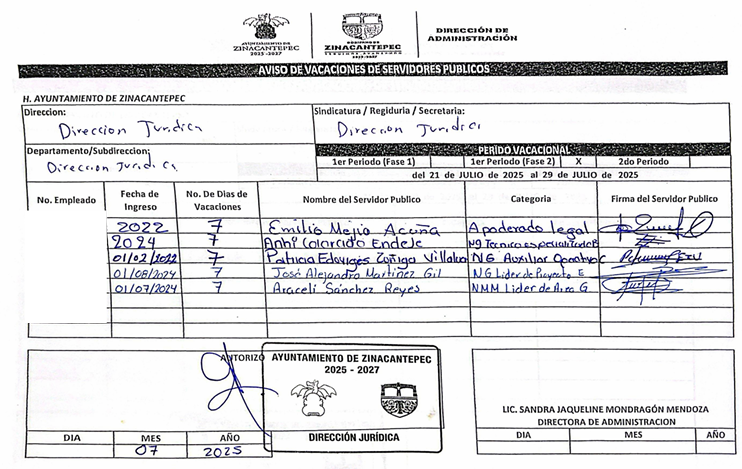 AYUNTAMIENTO DE
ZINACANTEPEC
2025 - 2027
GOBIERNO DE
ZINACANTEPEC
2025-2027
DIRECCIÓN DE
ADMINISTRACIÓN
AVISO DE VACACIONES DE SERVIDORES PUBLICOS
H. AYUNTAMIENTO DE ZINACANTEPEC
Direccion:
Direccion Juridica
Sindicatura / Regiduria / Secretaria:
Direccion Juridica
Departamento/Subdireccion:
Direccion Juridica
PERIDO VACACIONAL
1er Periodo (Fase 1) 1er Periodo (Fase 2) X 2do Periodo
del 21 de JULIO de 2025 al 29 de JULIO de 2025
No. Empleado Fecha de Ingreso No. De Dias de Vacaciones Nombre del Servidor Publico Categoria Firma del Servidor Publico
2022 7 Emilio Mejia Acuña Apoderado legal
2024 7 Colorado
01/02/2022 7 Patricia Zuñiga Villalva NG Auxiliar
01/08/2024 7 José Alejandro Martiñez Gil NG Lider de Proyecto E
01/07/2024 7 Araceli Sánchez Reyes NMM Lider de Area G.
AUTORIZÓ
AYUNTAMIENTO DE ZINACANTEPEC
2025 - 2027
DIRECCIÓN JURÍDICA
DIA MES AÑO
07 2025
LIC. SANDRA JAQUELINE MONDRAGÓN MENDOZA
DIRECTORA DE ADMINISTRACION
DIA MES AÑO